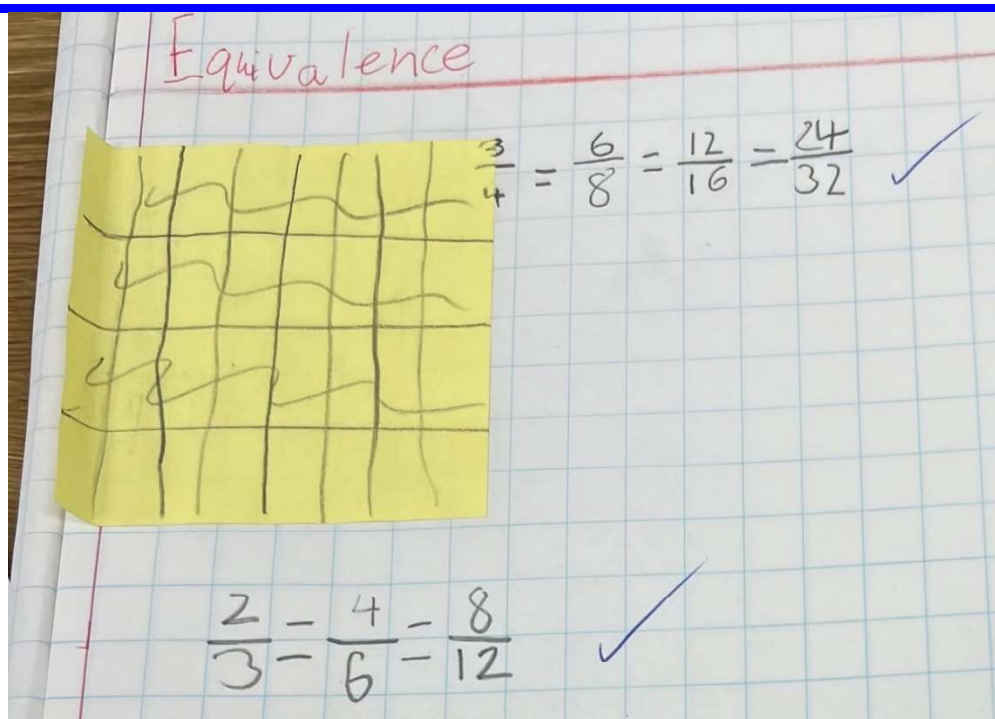 Equivalence
3/4 = 6/8 = 12/16 = 24/32 ✓
2/3 = 4/6 = 8/12 ✓